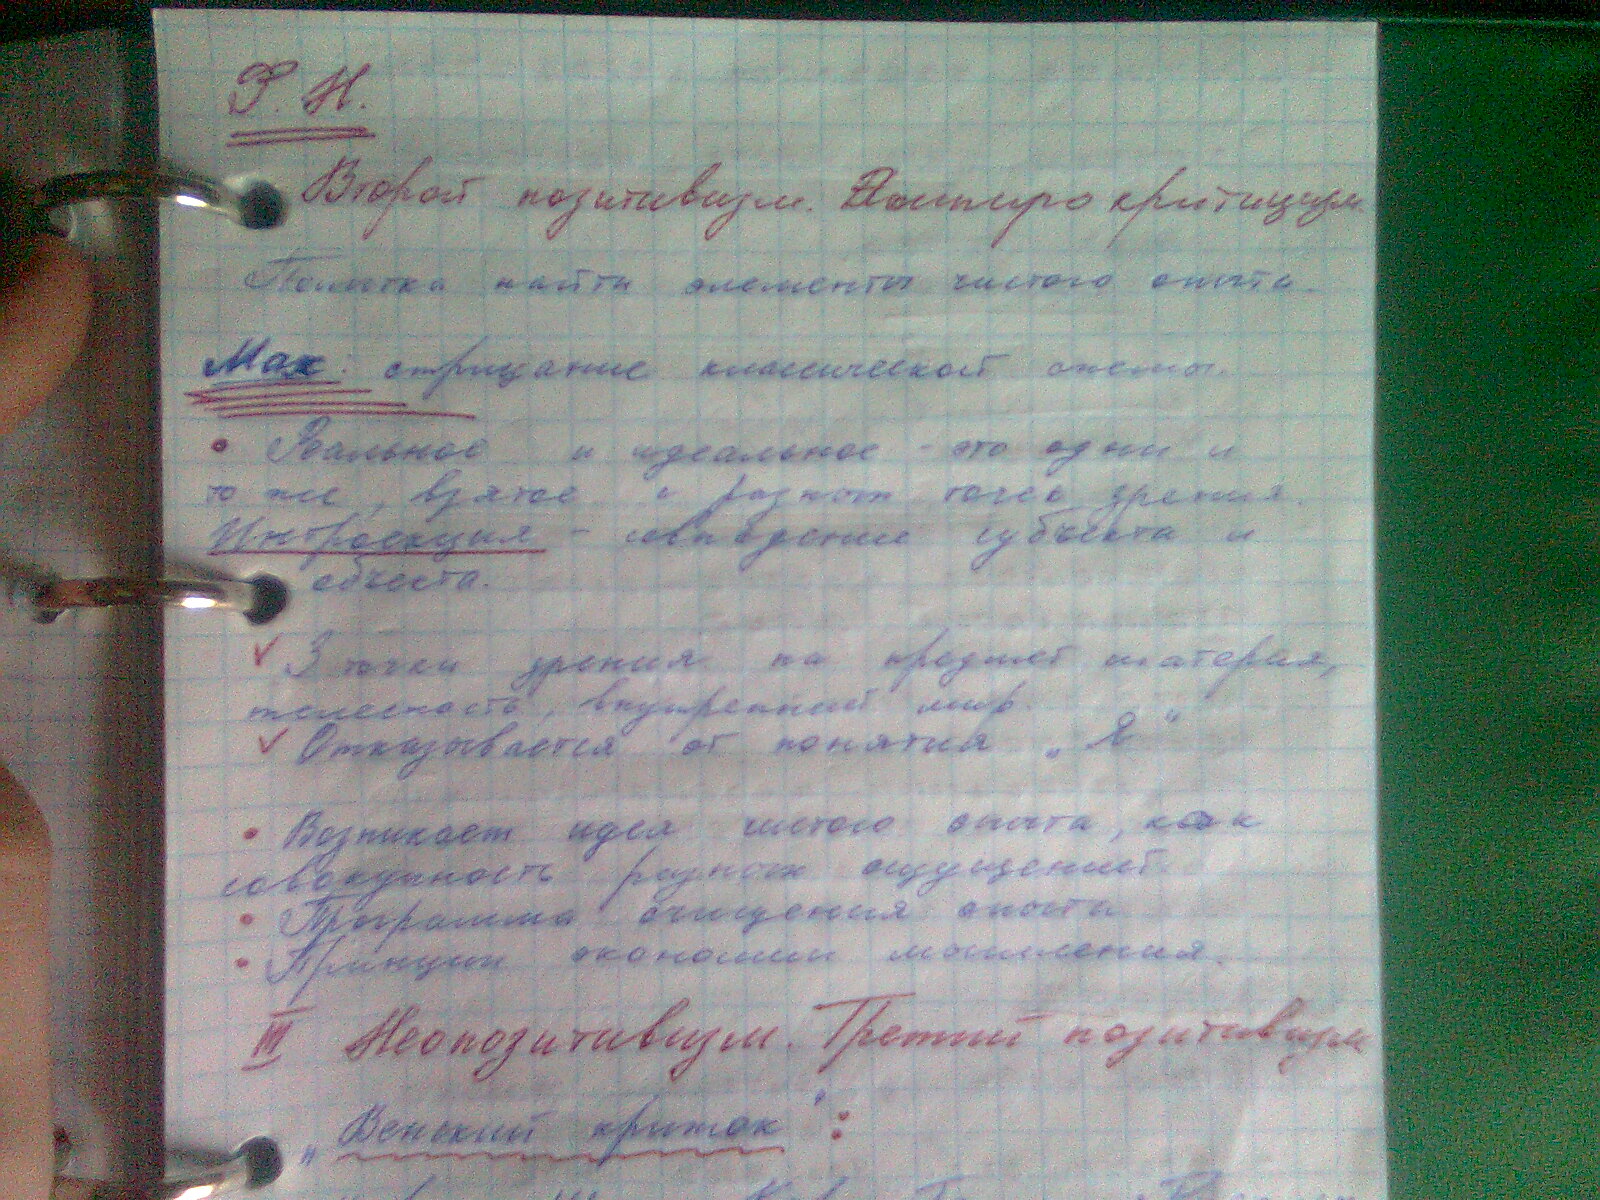 Ф. Н.
Второй позитивизм. Эмпириокритицизм.
Попытка найти элементы чистого опыта.
Мах: отрицание классической схемы.
• Реальное и идеальное - это одни и
то же, взятое с разных точек зрения.
Интроекция - совпадение субъекта и
объекта.
✓ 3 точки зрения на предмет материя,
телесность, внутренний мир.
✓ Отказывается от понятия „Я“
• Возникает идея чистого опыта, как
совокупность разных ощущений.
• Программа очищения опыта
• Принцип экономии мышления.
III Неопозитивизм. Третий позитивизм
„Венский кружок“: